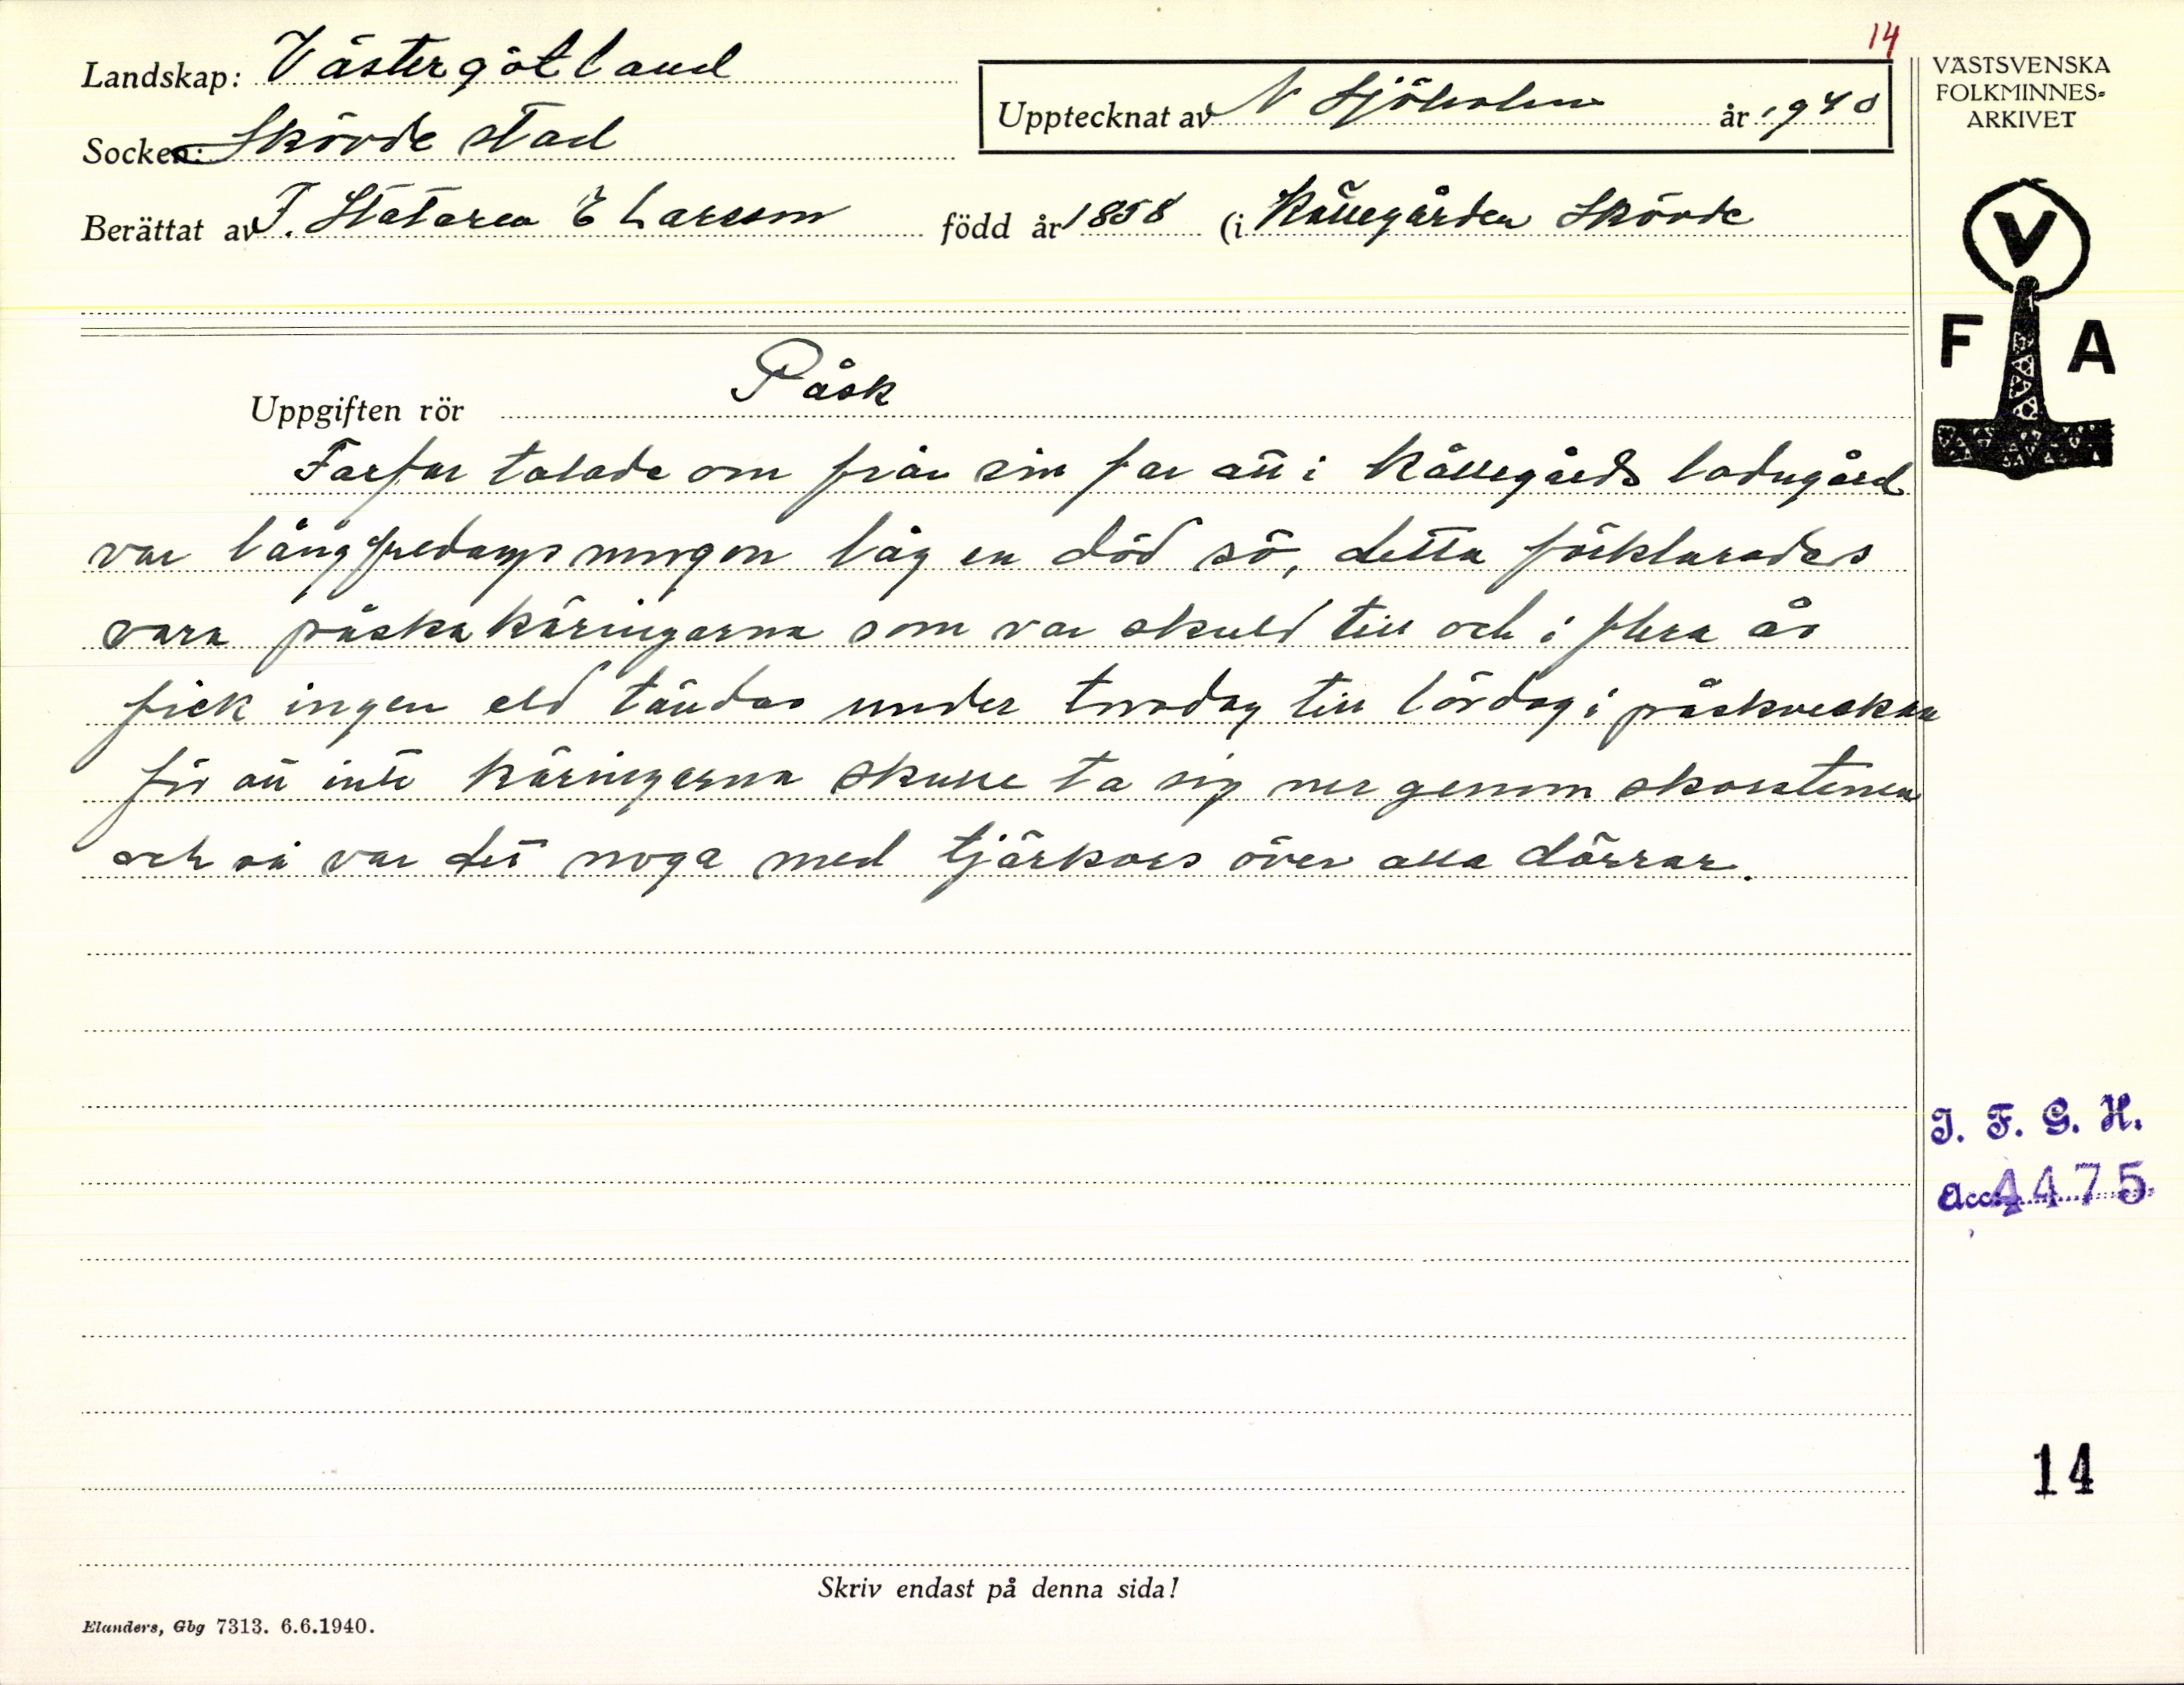 14
Landskap: Västergötland
Socken: Skövde stad
Upptecknat av N Sjöholm år 1940
Berättat av F. Stataren E Larsson född år 1858 (i Källegården Skövde
VÄSTSVENSKA
FOLKMINNES-
ARKIVET
V
F A
Uppgiften rör Påsk
Farfar talade om från sin far att i Källegårds ladugård
var långfredagsmorgon låg en död so, detta förklarades
vara påskakäringarna som var skuld till och i flera år
fick ingen eld tändas under torsdag till lördag i påskveckan
för att inte käringarna skulle ta sig ner genom skorstenen
och så var det noga med tjärkors över alla dörrar.
I. F. G. H.
Acc. 4475
14
Skriv endast på denna sida!
Elanders, Gbg 7313. 6.6.1940.